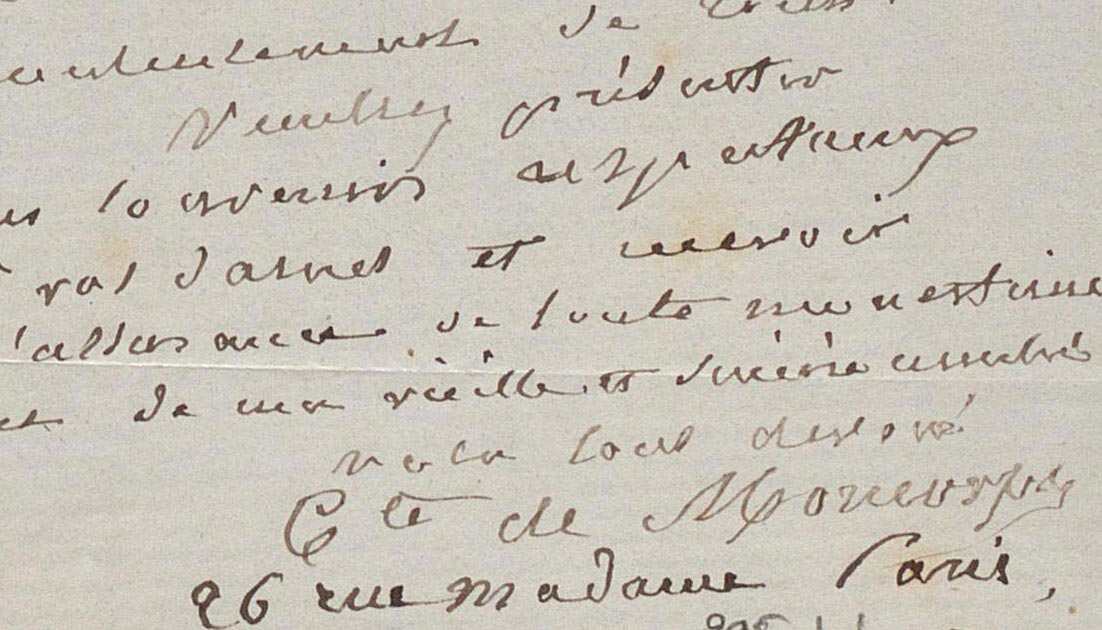 de
Veuillez présenter
souvenirs respectueux
vos dames et recevoir
l'assurance de toute mon estime
et de ma vieille et sincère amitié
votre tout dévoué
Cte de
26 rue Madame Paris,